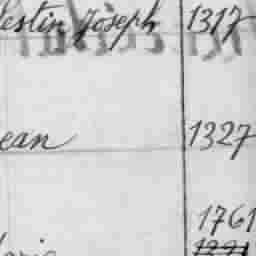 lestin Joseph 1317
ean 1327
1761